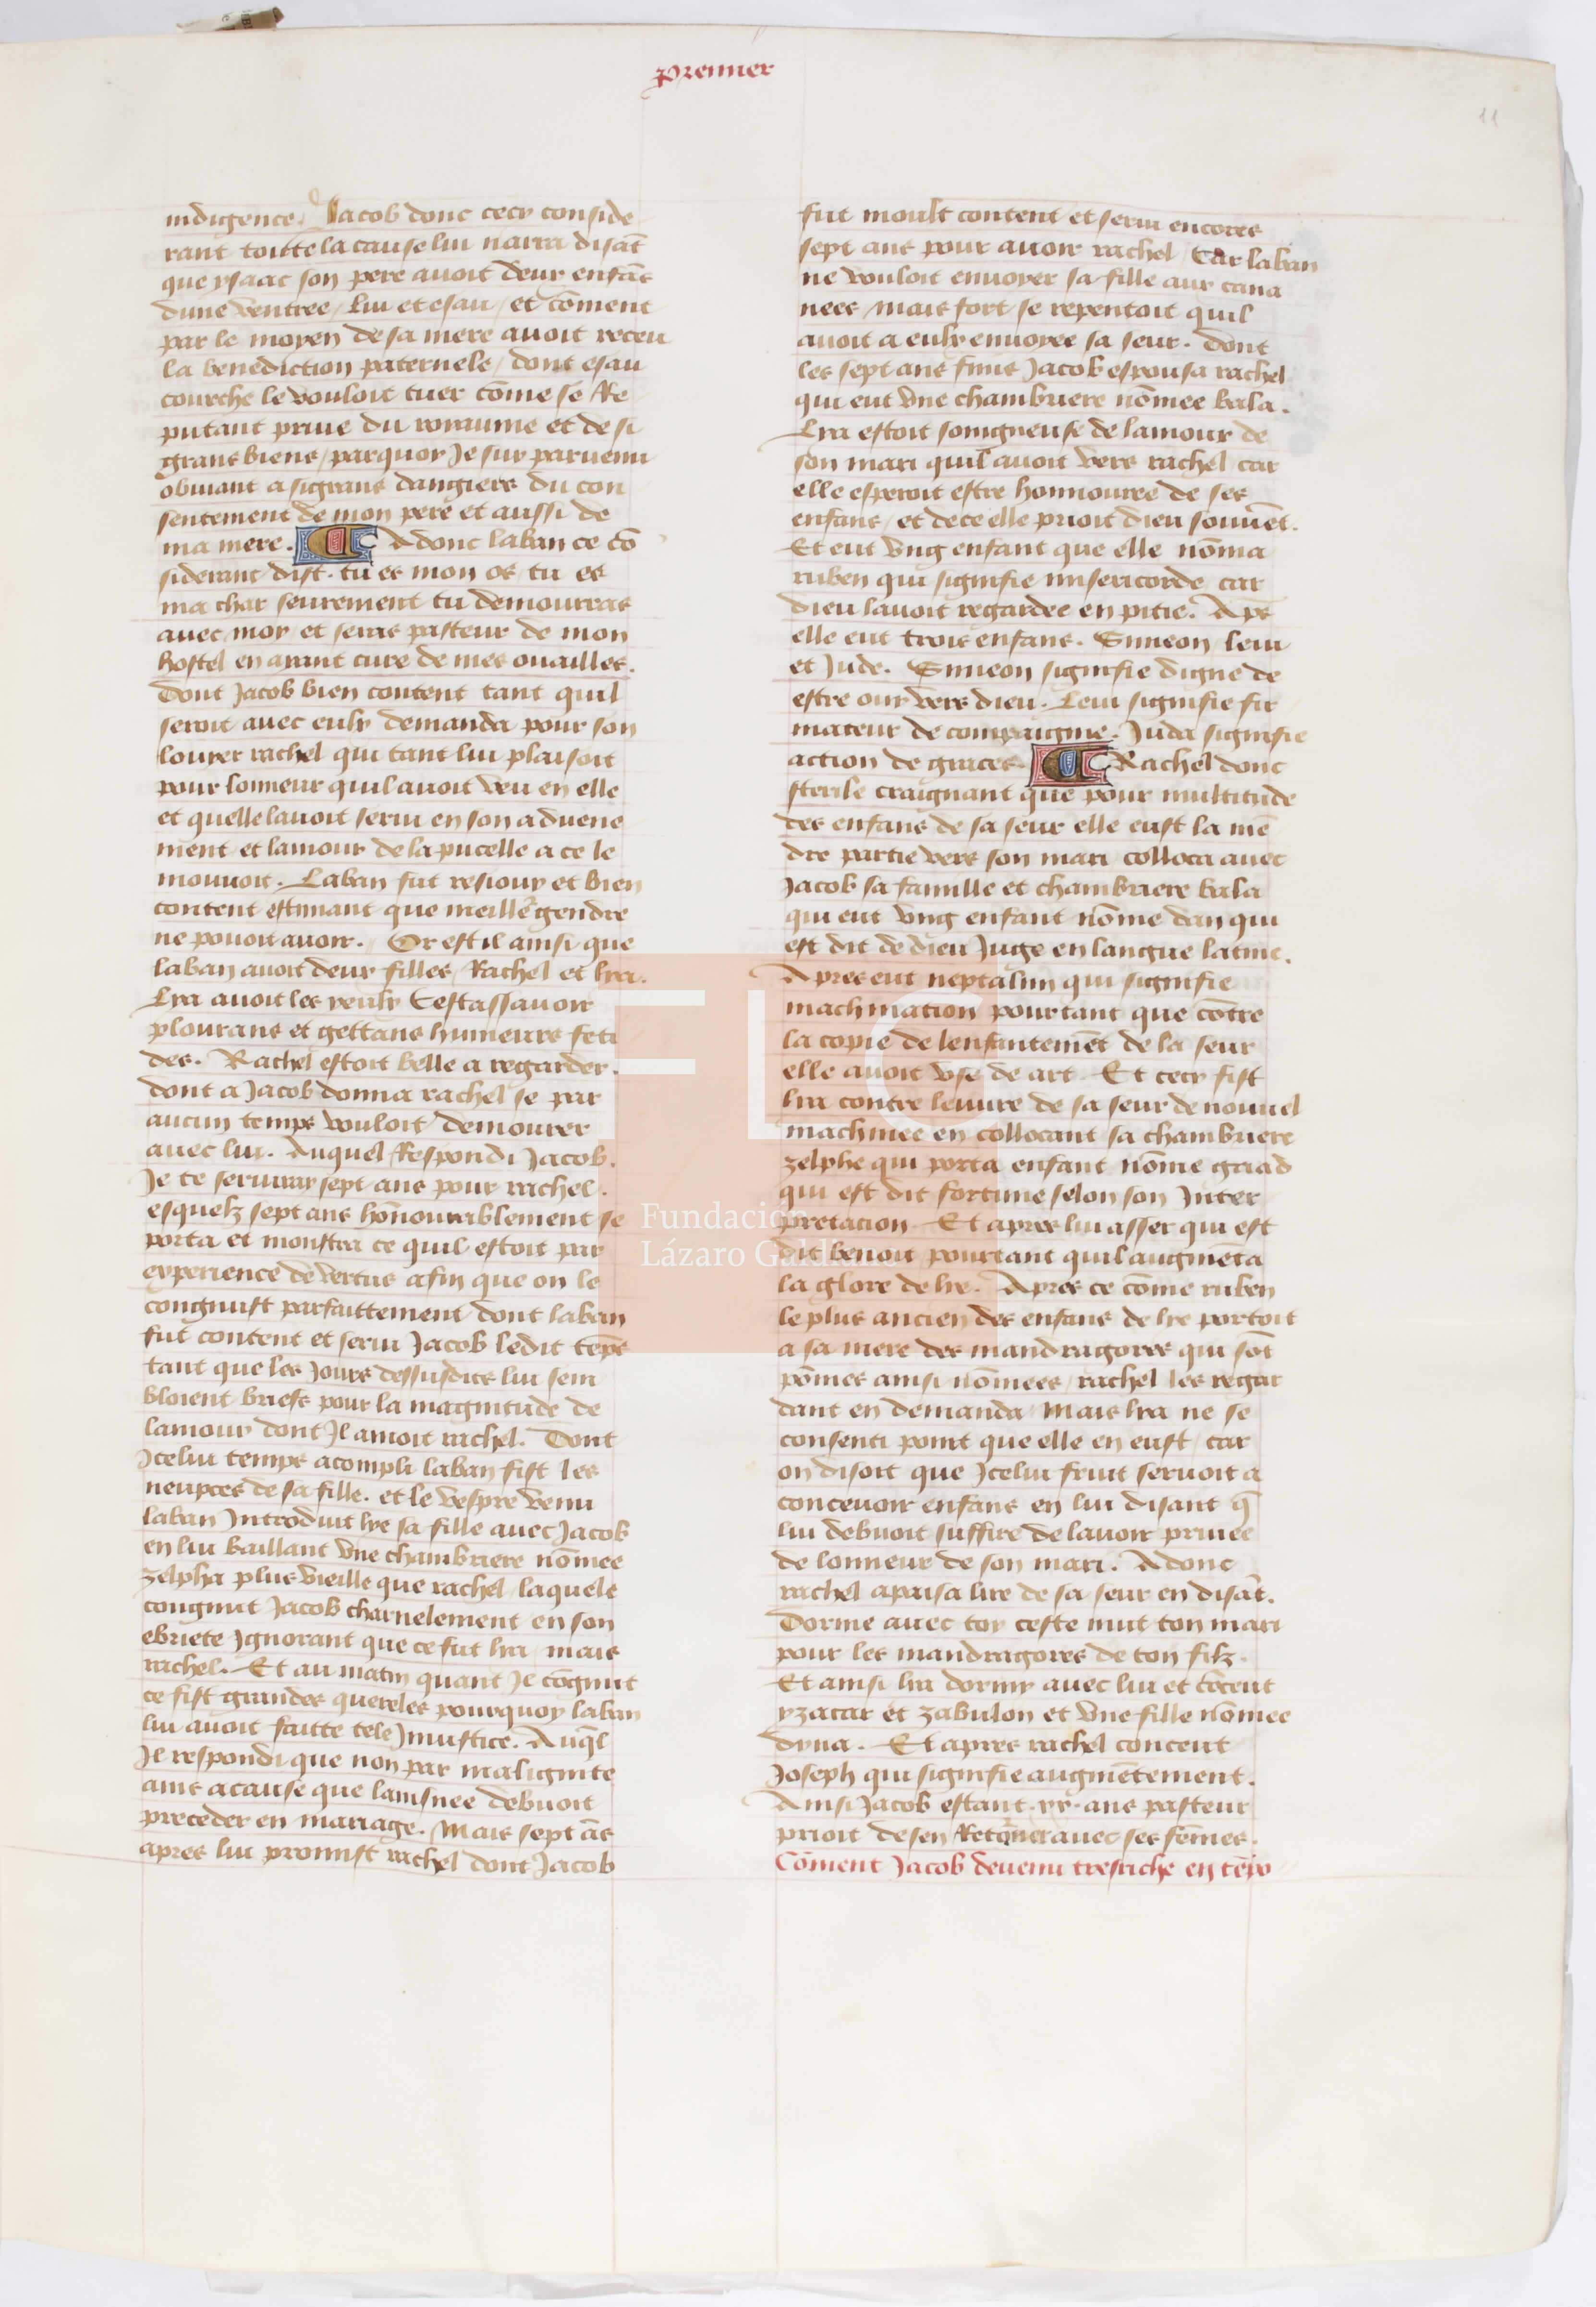 premier
11
indigence. Jacob donc cecy conside
rant toutte la cause lui narra disāt
que ysaac son pere avoit deux enfās
dune ventree / lui et esau / et cōment
par le moyen de sa mere avoit receu
la benediction paternele / dont esau
courche le vouloit tuer cōme se Re
putant prive du royaume et de si
grans biens / parquoy Je suy parvenu
obviant a si grans dangiers du con
sentement de mon pere et aussi de
ma mere. Adonc laban ce cō
siderant dist. tu es mon os tu es
ma char seurement tu demourras
avec moy et seras pasteur de mon
hostel en ayant cure de mes ouailles.
Dont Jacob bien content tant quil
seroit avec eulx demanda pour son
louyer rachel qui tant lui plaisoit
pour lonneur quil avoit veu en elle
et quelle lavoit servi en son advene
ment et lamour de la pucelle a ce le
mouvoit. Laban fut resiouy et bien
content estimant que meille gendre
ne povoit avoir. Or est il ainsi que
laban avoit deux filles Rachel et lya.
Lya avoit les yeulx Cestassavoir
plourans et gettans humeurs feti
des. Rachel estoit belle a regarder.
dont a Jacob donna rachel se par
aucun temps vouloit demourer
avec lui. Auquel Respondi Jacob.
Je te serviray sept ans pour rachel.
esquelz sept ans hōnourablement se
porta et monstra ce quil estoit par
experience de vertus afin que on le
congnust parfaittement dont laban
fut content et servi Jacob ledit tēps
tant que les Jours dessusdits lui sem
bloient briefs pour la magnitude de
lamour dont Il amoit rachel. Dont
Icelui temps acompli laban fist les
neupces de sa fille. et le vespre venu
laban Introduit lye sa fille avec Jacob
en lui baillant vne chambriere nōmee
zelpha plus vieille que rachel laquele
congnut Jacob charnelement en son
ebriete Ignorant que ce fut lya mais
rachel. Et au matin quant Il cōgnut
ce fist grandes quereles pourquoy laban
lui avoit faitte tele Iniustice. Auq̄l
Il respondi que non par malignite
ains a cause que laisnee debvoit
preceder en mariage. Mais sept ās
apres lui promist rachel dont Jacob
fut moult content et servi encores
sept ans pour avoir rachel / Car laban
ne vouloit envoyer sa fille aux cana
nees / mais fort se repentoit quil
avoit a eulx envoyee sa seur. Dont
les sept ans finis Jacob espousa rachel
qui eut vne chambriere nōmee bala.
Lya estoit soingneuse de lamour de
son mari quil avoit vers rachel car
elle esperoit estre honnouree de ses
enfans / et de ce elle prioit dieu souvēt.
Et eut vng enfant que elle nōma
ruben qui signifie misericorde car
dieu lavoit regardee en pitie. Aps
elle eut trois enfans. Simeon levi
et Jude. Simeon signifie digne de
estre ouy vers dieu. Levi signifie fir
mateur de compaignie. Juda signifie
action de graces. Rachel donc
sterile craignant que pour multitude
des enfans de sa seur elle eust la mē
dre partie vers son mari colloca avec
Jacob sa famille et chambriere bala
qui eut vng enfant nōme dan qui
est dit de dieu Juge en langue latine.
Apres eut neptalim qui signifie
machination pourtant que cōtre
la copie de lenfantemēt de la seur
elle avoit vse de art. Et cecy fist
lya contre leuvre de sa seur de nouvel
machinee en collocant sa chambriere
zelphe qui porta enfant nōme gaad
qui est dit fortune selon son Inter
pretacion. Et apres lui asser qui est
dit benoit pourtant quil augmēta
la glore de lye. Apres ce cōme ruben
le plus ancien des enfans de lye portoit
a sa mere des mandragores qui sōt
pōmes ainsi nōmees / rachel les regar
dant en demanda Mais lya ne se
consenti point que elle en eust / car
on disoit que Icelui fruit servoit a
concevoir enfans en lui disant q̄
lui debvoit suffire de lavoir privee
de lonneur de son mari. Adonc
rachel apaisa lire de sa seur en disāt.
Dorme avec toy ceste nuit ton mari
pour les mandragores de ton filz.
Et ainsi lya dormy avec lui et cōceut
yzacar et zabulon et vne fille nōmee
dyna. Et apres rachel conceut
Joseph qui signifie augmētement.
Ainsi Jacob estant .xx. ans pasteur
prioit de sen Retorner avec ses fēmes.
Cōment Jacob devenu tresriche en tēpo
FLG
Fundación
Lázaro Galdiano